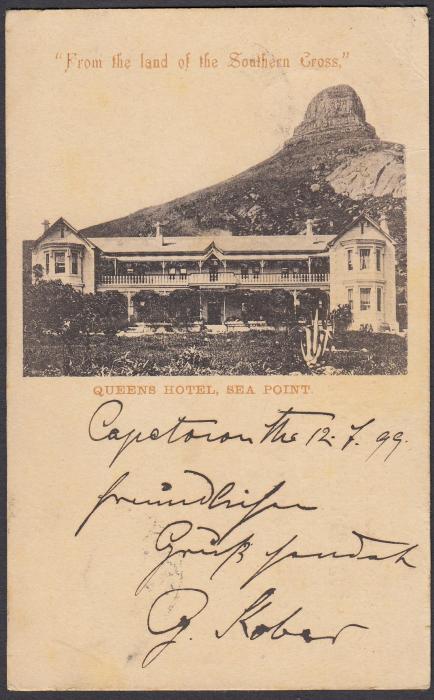 "From the land of the Southern Cross,"
QUEENS HOTEL, SEA POINT.
Capetown the 12.7.99.
freundlichen
Gruß sendet
G. Kober